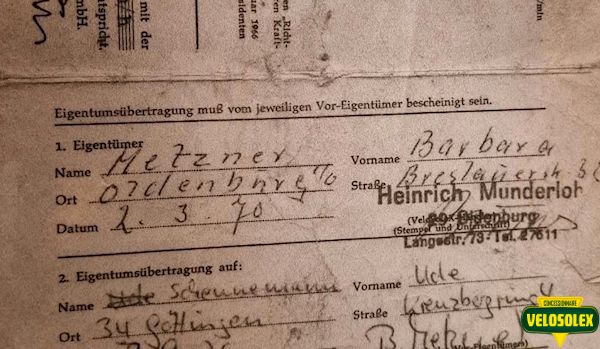 en „Richt-
eren Kraft-
uar 1966
sidenten
mit der
tspricht.
mbH.
m/min
Eigentumsübertragung muß vom jeweiligen Vor-Eigentümer bescheinigt sein.
1. Eigentümer
Name Metzner Vorname Barbara
Ort Oldenburg Straße Breslauerstr
Heinrich Munderloh
Datum 2. 3. 70
29 Oldenburg
(Stempel und Unterschrift)
Langestr. 73 · Tel. 27611
2. Eigentumsübertragung auf:
Name Schennemann Vorname Ude
Ort 34 Göttingen Straße Kreuzbergring
CONCESSIONNAIRE
VELOSOLEX